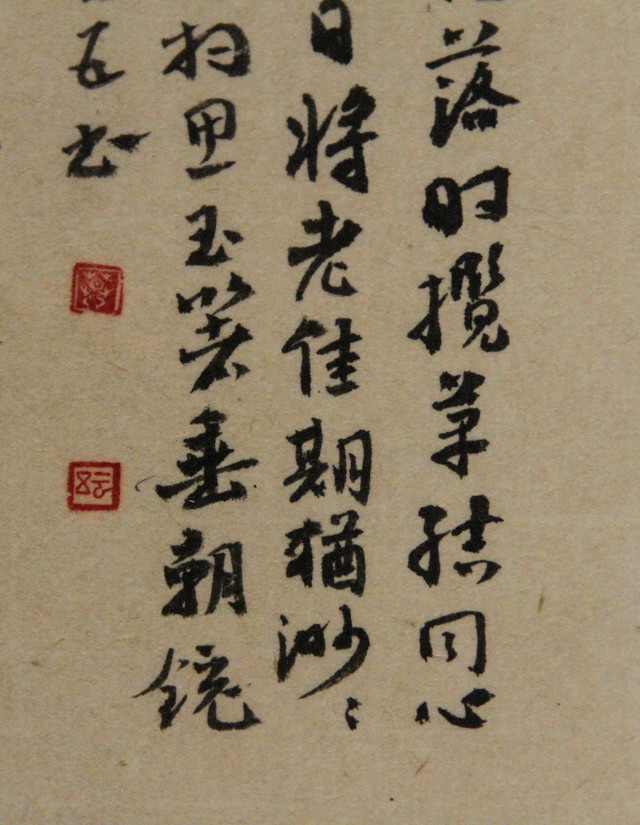 落时揽草结同心
日将老佳期犹渺〻
相思玉箸垂朝镜
五书